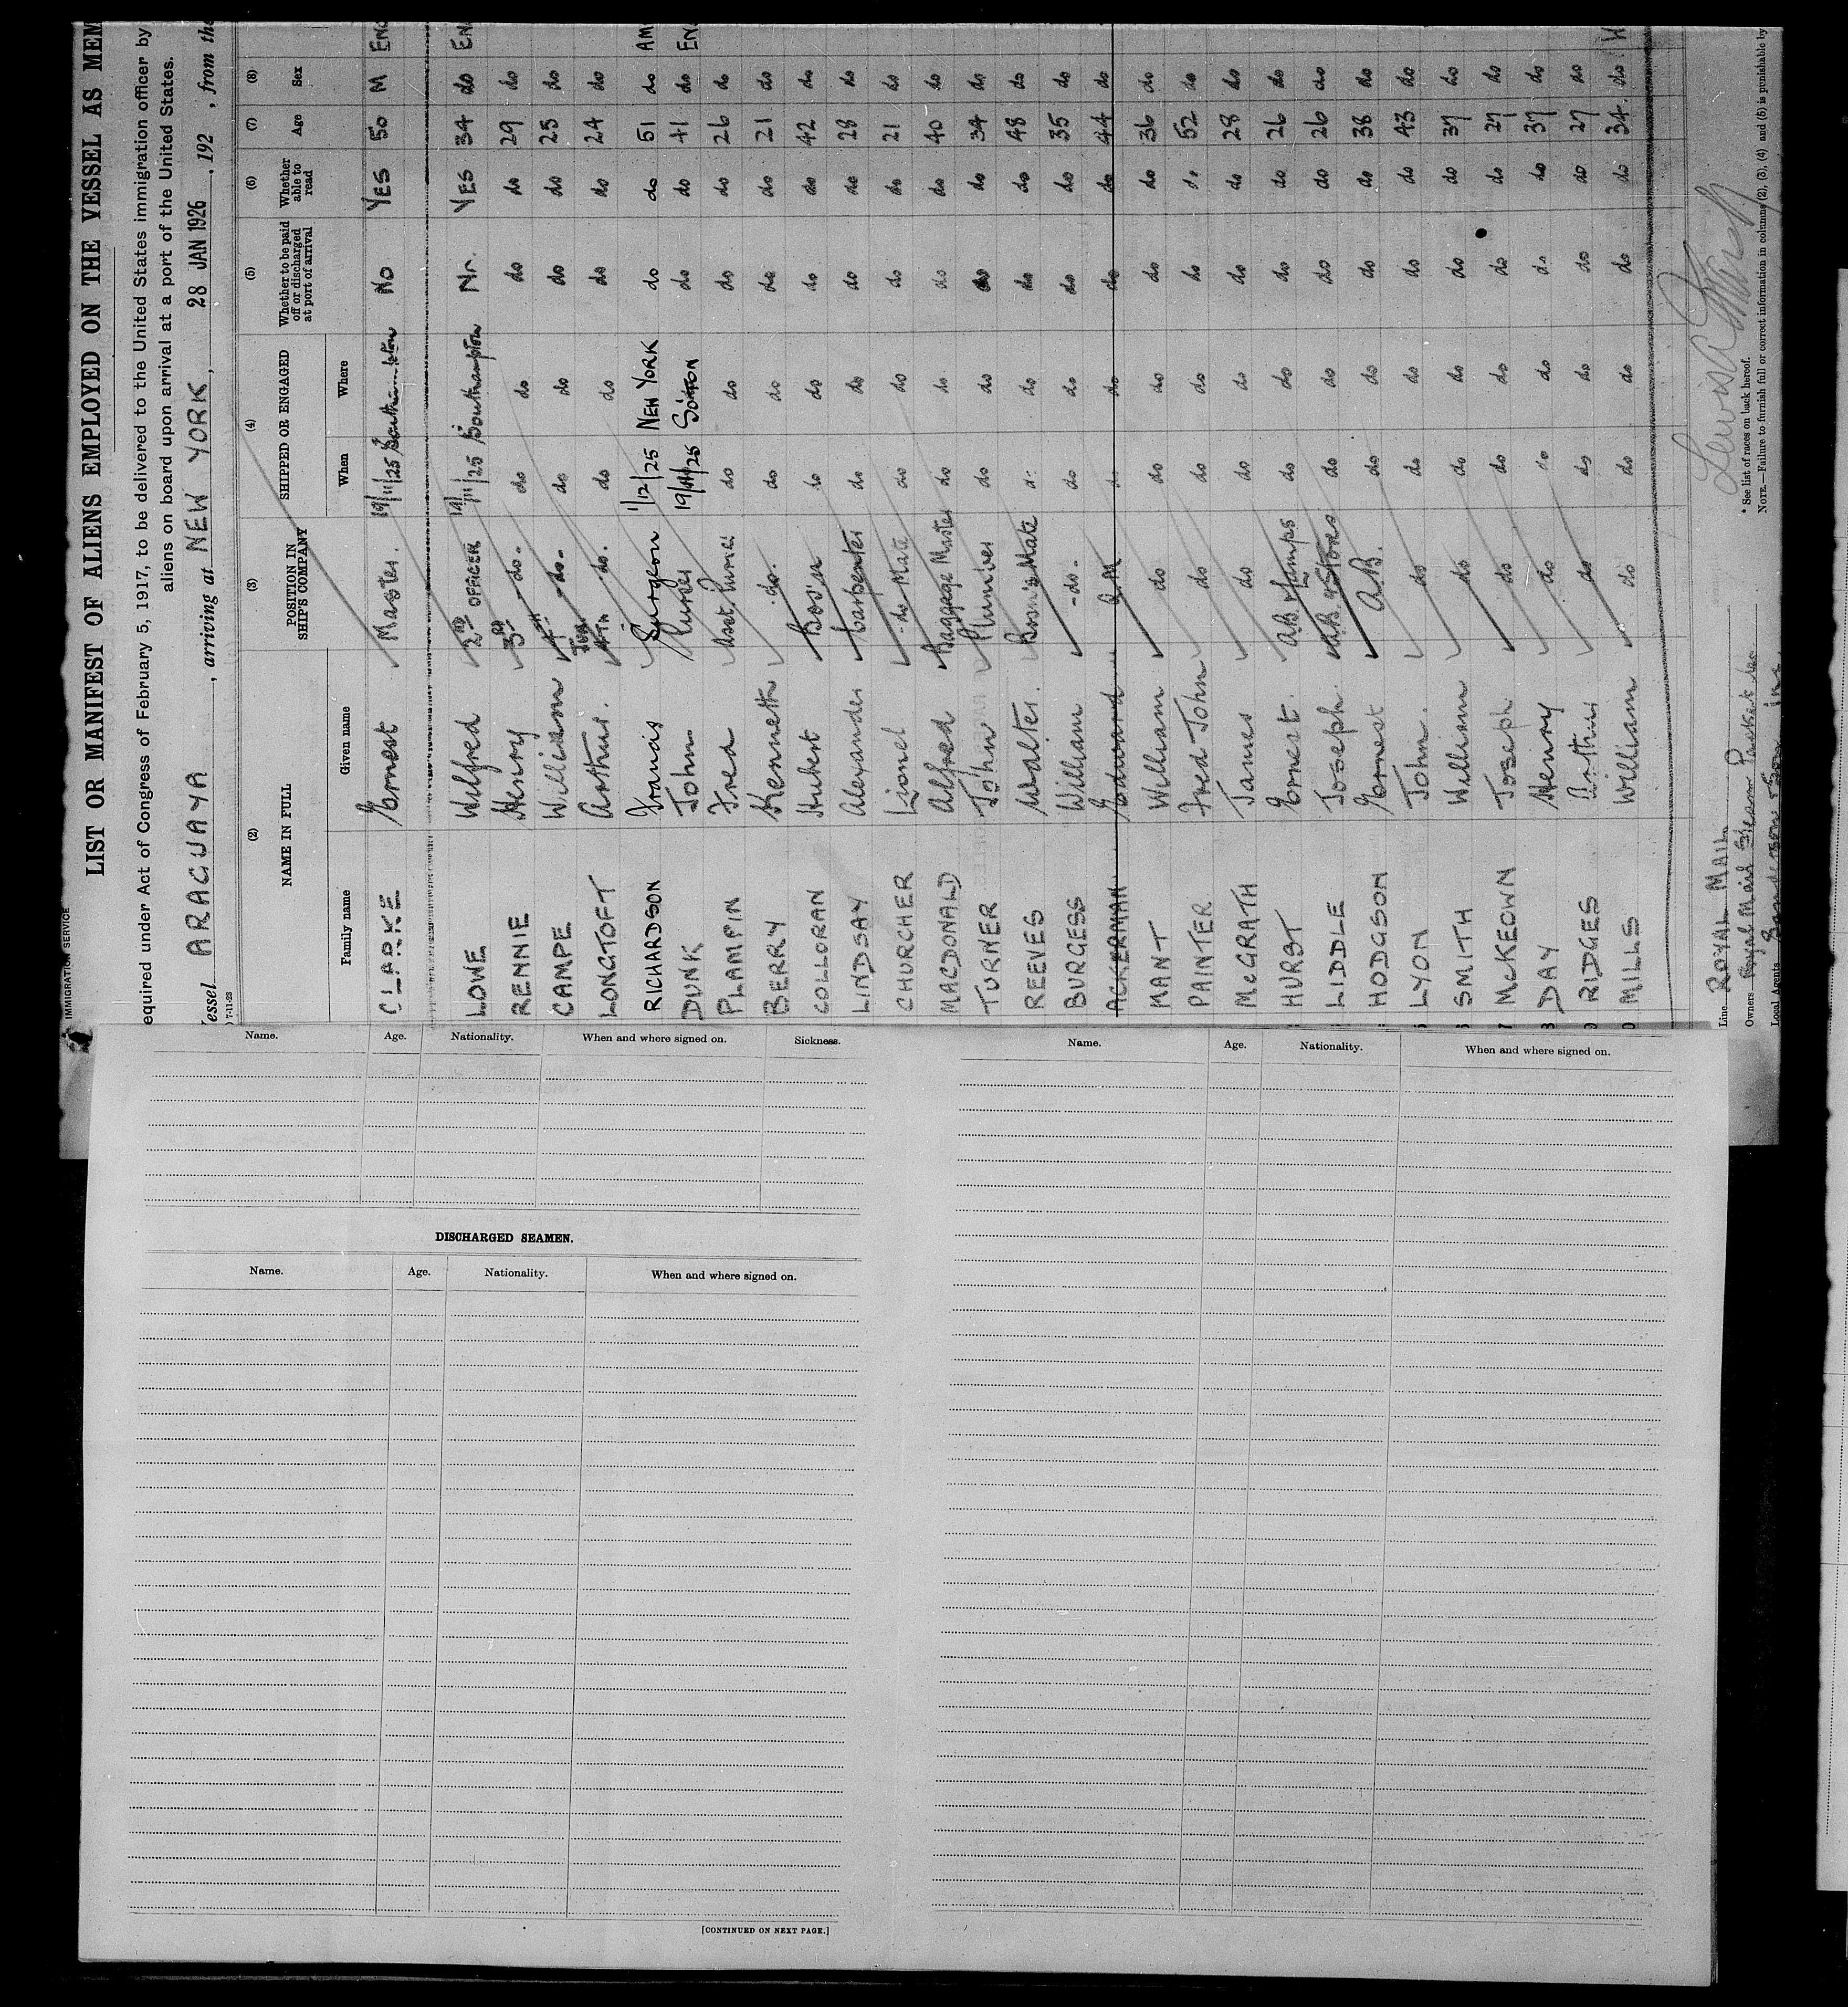 IMMIGRATION SERVICE
LIST OR MANIFEST OF ALIENS EMPLOYED ON THE VESSEL AS MEM
equired under Act of Congress of February 5, 1917, to be delivered to the United States immigration officer by
aliens on board upon arrival at a port of the United States.
essel ARAGUAYA, arriving at NEW YORK, 28 JAN 1926, 192 , from the
7-11-23
(2) (3) (4) (5) (6) (7) (8)
NAME IN FULL POSITION IN SHIP'S COMPANY SHIPPED OR ENGAGED Whether to be paid off or discharged at port of arrival Whether able to read Age Sex
Family name Given name When Where
CLARKE Ernest Master. 19/11/25 Southampton No YES 50 M EN
LOWE Wilfred 2ND OFFICER 19/11/25 Southampton No. YES 34 do EN
RENNIE Henry 3RD -do- do do do do 29 do
CAMPE William 4TH -do- do do do do 25 do
LONGTOFT Arthur. JUN 4TH do. do do do do 24 do
RICHARDSON Francis Surgeon 1/12/25 NEW YORK do do 51 do AM
DUNK John Purser 19/11/25 S'OTON do do 41 do EN
PLAMPIN Fred Asst. Purser do do do do 26 do
BERRY Kenneth -do- do do do do 21 do
COLLORAN Hubert Bos'n do do do do 42 do
LINDSAY Alexander Carpenter do do do do 28 do
CHURCHER Lionel -do- Mate do do do do 21 do
MACDONALD Alfred Baggage Master do do do do 40 do
TURNER John Plumber do do do do 34 do
REEVES Walter. Bosn's Mate do do do do 48 do
BURGESS William -do- do do do do 35 do
ACKERMAN Edward Q.M. do do do do 44 do
MANT William do do do do do 36 do
PAINTER Fred John do do do do do 52 do
McGRATH James do do do do do 28 do
HURST Ernest. AB & Lamps do do do do 26 do
LIDDLE Joseph. AB & Stores do do do do 26 do
HODGSON Ernest A.B. do do do do 38 do
LYON John. do do do do do 43 do
SMITH William do do do do do 37 do
McKEOWN Joseph do do do do do 27 do
DAY Henry do do do do do 37 do
RIDGES Arthur do do do do do 27 do
MILLS William do do do do do 34. do W
Line ROYAL MAIL
Owners Royal Mail Steam Packet
Local Agents Sanderson & Son Inc
* See list of races on back hereof.
NOTE.—Failure to furnish full or correct information in columns (2), (3), (4) and (5) is punishable by
Name. Age. Nationality. When and where signed on. Sickness.
DISCHARGED SEAMEN.
Name. Age. Nationality. When and where signed on.
[CONTINUED ON NEXT PAGE.]
Name. Age. Nationality. When and where signed on.